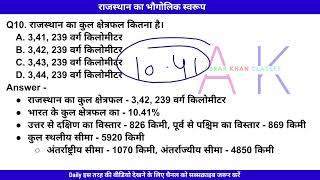 राजस्थान का भौगोलिक स्वरूप
Q10. राजस्थान का कुल क्षेत्रफल कितना है।
A. 3,41, 239 वर्ग किलोमीटर
B. 3,42, 239 वर्ग किलोमीटर
C. 3,43, 239 वर्ग किलोमीटर
D. 3,44, 239 वर्ग किलोमीटर
10.41
A K
KHAN CLASSES
Answer -
• राजस्थान का कुल क्षेत्रफल - 3,42, 239 वर्ग किलोमीटर
• भारत के कुल क्षेत्रफल का - 10.41%
• उत्तर से दक्षिण का विस्तार - 826 किमी, पूर्व से पश्चिम का विस्तार - 869 किमी
• कुल स्थलीय सीमा - 5920 किमी
• अंतर्राष्ट्रीय सीमा - 1070 किमी, अंतर्राज्यीय सीमा - 4850 किमी
Daily इस तरह की वीडियो देखने के लिए चैनल को सब्सक्राइब जरूर करें